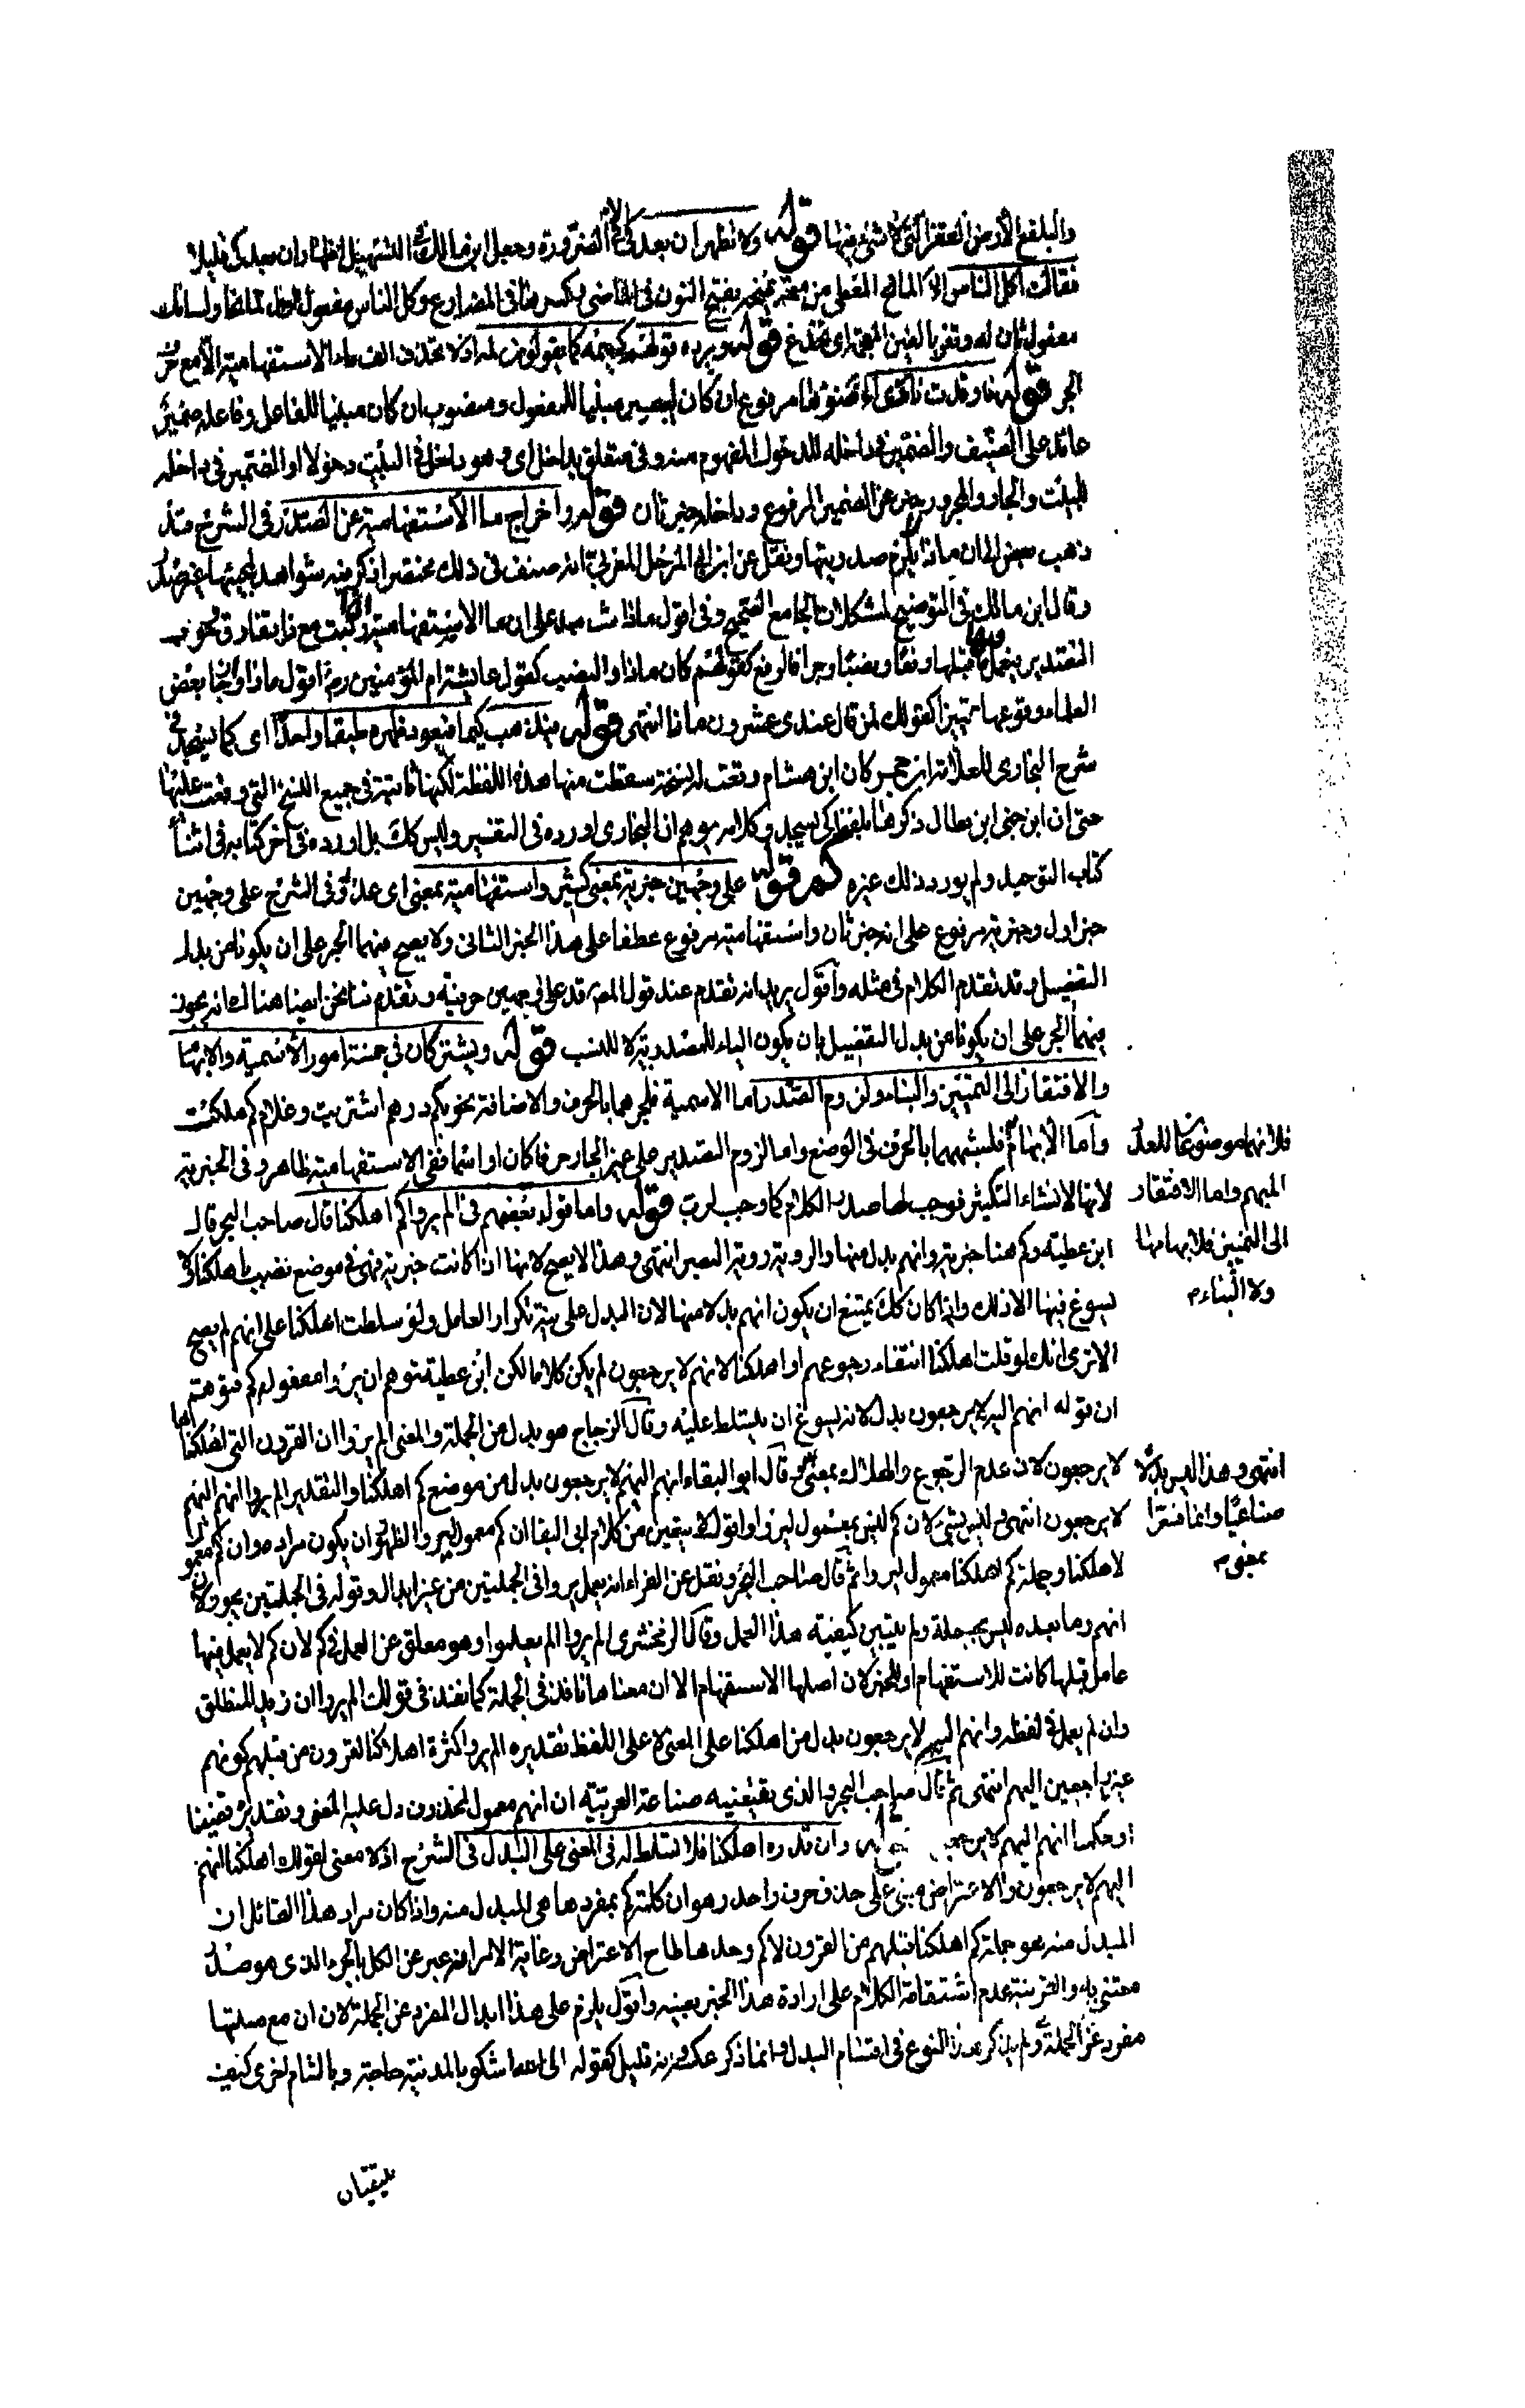 والبلقع الأرض القفر التي لا شئ فيها قوله ولا تظهر ان بعد كي الا في الضرورة وجعل ابن مالك في التسهيل اظهار ان بعد كي قليلا
فقالت اكل الناس الا المانح المعطى من منحه يمنحه بفتح النون في الماضي وكسرها في المضارع وكل الناس مفعول اول لمانحا ولسانك
مفعول ثان له وتغر بالغين المعجمة اي تخدع قوله ويرده قولهم كيمه كما يقولون لمه اذ لا تحذف الف ما الاستفهامية الا مع حرف
الجر قوله
عائد على الضيف والضمير في داخله للدخول المفهوم منه وفي متعلق بداخل اي وهو داخل في البيت دخولا او الضمير في داخله
للبيت والجار والمجرور عن الضمير المرفوع وداخله خبر ثان قوله واخراج ما الاستفهامية عن الصدر في الشرح قد
ذهب بعض الى ان ماذا يلزم صدريتها ونقل عن ابن المرحل المغربي انه صنف في ذلك مختصرا ذكر فيه شواهد لمجيئها غير صدر
وقال ابن مالك في التوضيح لمشكلات الجامع الصحيح وفي اقول ماذا شاهد على ان ما الاستفهامية اذا ركبت مع ذا تفارق وجوب
التصدير فيعمل فيها ما قبلها رفعا ونصبا وجرا فالرفع كقولهم كان ماذا والنصب كقول عائشة ام المؤمنين رض اقول ماذا واجاز بعض
العلماء وقوعها تمييزا كقولك لمن قال عندي عشرون ماذا انتهى قوله فيذهب كيما فيعود ظهره طبقا واحدا اي كيما يسجد في
شرح البخاري للعلامة ابن حجر كان ابن هشام وقعت له نسخة سقطت منها هذه اللفظة لكنها ثابتة في جميع النسخ التي وقفت عليها
حتى ان ابن بطال ذكرها بلفظ كي يسجد وكلامه يوهم ان البخاري اورده في التفسير وليس كك بل اورده في آخر كتابه في اثناء
كتاب التوحيد ولم يورد ذلك غيره كم قوله على وجهين خبرية بمعنى كثير واستفهامية بمعنى اي عدد في الشرح على وجهين
خبر اول وخبرية مرفوع على انه خبر ثان واستفهامية مرفوع عطفا على هذا الخبر الثاني ولا يصح فيهما الجر على ان يكونا من بدل
التفصيل وقد تقدم الكلام في مثله واقول يريد انه تقدم عند قول المص قد على وجهين حرفية وتقدم منا نحن ايضا هناك انه يجوز
فيهما الجر على ان يكونا من بدل التفصيل بان يكون الياء للمصدرية لا للنسب قوله ويشتركان في خمسة امور الاسمية والابهام
والافتقار الى التمييز والبناء ولزوم التصدر اما الاسمية فلجرهما بالحرف والاضافة نحو بكم درهم اشتريت وغلام كم ملكت
واما الابهام فلانهما موضوعتان للعدد
المبهم واما الافتقار
الى التمييز فلابهامهما
ولا البناء م
فلشبههما بالحرف في الوضع واما لزوم التصدير على غير الجار حرفا كان او اسما ففي الاستفهامية ظاهر وفي الخبرية
لانها لانشاء التكثير فوجب لها صدر الكلام كما وجب لرب قوله واما قول بعضهم في الم يروا كم اهلكنا قال صاحب البحر قال
ابن عطية وكم هنا خبرية وانهم بدل منها والروية روية البصر انتهى وهذا لا يصح لانها اذا كانت خبرية فهي في موضع نصب باهلكنا ولا
يسوغ فيها الا ذلك واذا كان كك يمتنع ان يكون انهم بدلا منها لان البدل على نية تكرار العامل ولو سلطت اهلكنا على انهم لم يصح
الا ترى انك لو قلت اهلكنا انتفاء رجوعهم او اهلكنا لانهم لا يرجعون لم يكن كلاما لكن ابن عطية توهم ان يروا مفعوله كم فتوهم
ان قوله انهم اليهم لا يرجعون بدل لانه يسوغ ان يتسلط عليه وقال الزجاج هو بدل من الجملة والمعنى الم يروا ان القرون التي اهلكناها انهم
لا يرجعون لان عدم الرجوع والهلاك بمعنى انتهى وهذا ليس بدلا
صناعيا وانما فسرا
بمعنى م
قال ابو البقاء انهم اليهم لا يرجعون بدل من موضع كم اهلكنا والتقدير الم يروا انهم اليهم
لا يرجعون انتهى وليس بشئ لان كم ليس بمعمول ليروا واقول لا يتعين من كلام ابي البقا ان كم معمول ليروا والظاهر ان يكون مراده ان كم معمول
لاهلكنا وجملة كم اهلكنا معمول ليروا ثم قال صاحب البحر ونقل عن الفراء انه يعمل يروا في الجملتين من غير ابدال وقوله في الجملتين تجوز لان
انهم وما بعده ليس بجملة ولم يتبين كيفية هذا العمل وقال الزمخشري الم يروا الم يعلموا وهو معلق عن العمل في كم لان كم لا يعمل فيها
عامل قبلها كانت للاستفهام او للخبر لان اصلها الاستفهام الا ان معناها نافذ في الجملة كما نفذ في قولك الم يروا ان زيد لمنطلق
وان لم يعمل في لفظه وانهم اليهم لا يرجعون بدل من اهلكنا على المعنى لا على اللفظ تقديره الم يروا كثرة اهلاكنا القرون من قبلهم كونهم
غير راجعين اليهم انتهى ثم قال صاحب البحر والذي تقتضيه صناعة العربية ان انهم معمول لمحذوف دل عليه المعنى وتقديره قضينا
او حكمنا انهم اليهم لا يرجعون قوله وان قدره اهلكنا فلا تسلط له في المعنى على البدل في الشرح اذ لا معنى لقولك اهلكنا انهم
اليهم لا يرجعون والاعتراض مبني على حذف حرف واحد وهو ان كلمة كم بمفردها هي المبدل منه واذا كان مراد هذا القائل ان
المبدل منه هو جملة كم اهلكنا قبلهم من القرون لا كم وحدها طاح الاعتراض وغاية الامر انه عبر عن الكل بالجزء الذي هو صدر
معتنى به والقرينة عدم استقامة الكلام على ارادة هذا الجزء بعينه واقول يلزم على هذا ابدال المفرد عن الجملة لان ان مع صلتها
مفرد عن الجملة ولم يذكر هذا النوع في اقسام البدل وانما ذكر عكسه وانه قليل كقوله الى الله اشكو بالمدينة حاجة وبالشام اخرى كيف
يلتقيان